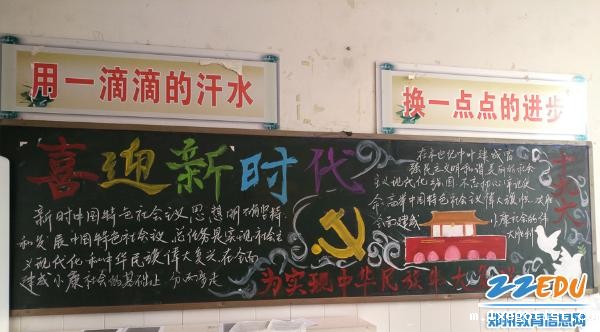 用一滴滴的汗水
换一点点的进步
喜迎新时代
新时中国特色社会议思想明确坚持
和发展中国特色会议总任务是实现社会主
义现代化和中华民族伟大复兴在全面
建成小康社会的基础上 分两步走
在本世纪中叶建成富
强民主文明和谐美丽的社会
主义现代化
中国特色社会议伟大旗帜
全面建成
小康社会的伟
大胜利
十九大
为实现中华民族伟大
ZZEDU
郑州教育信息网